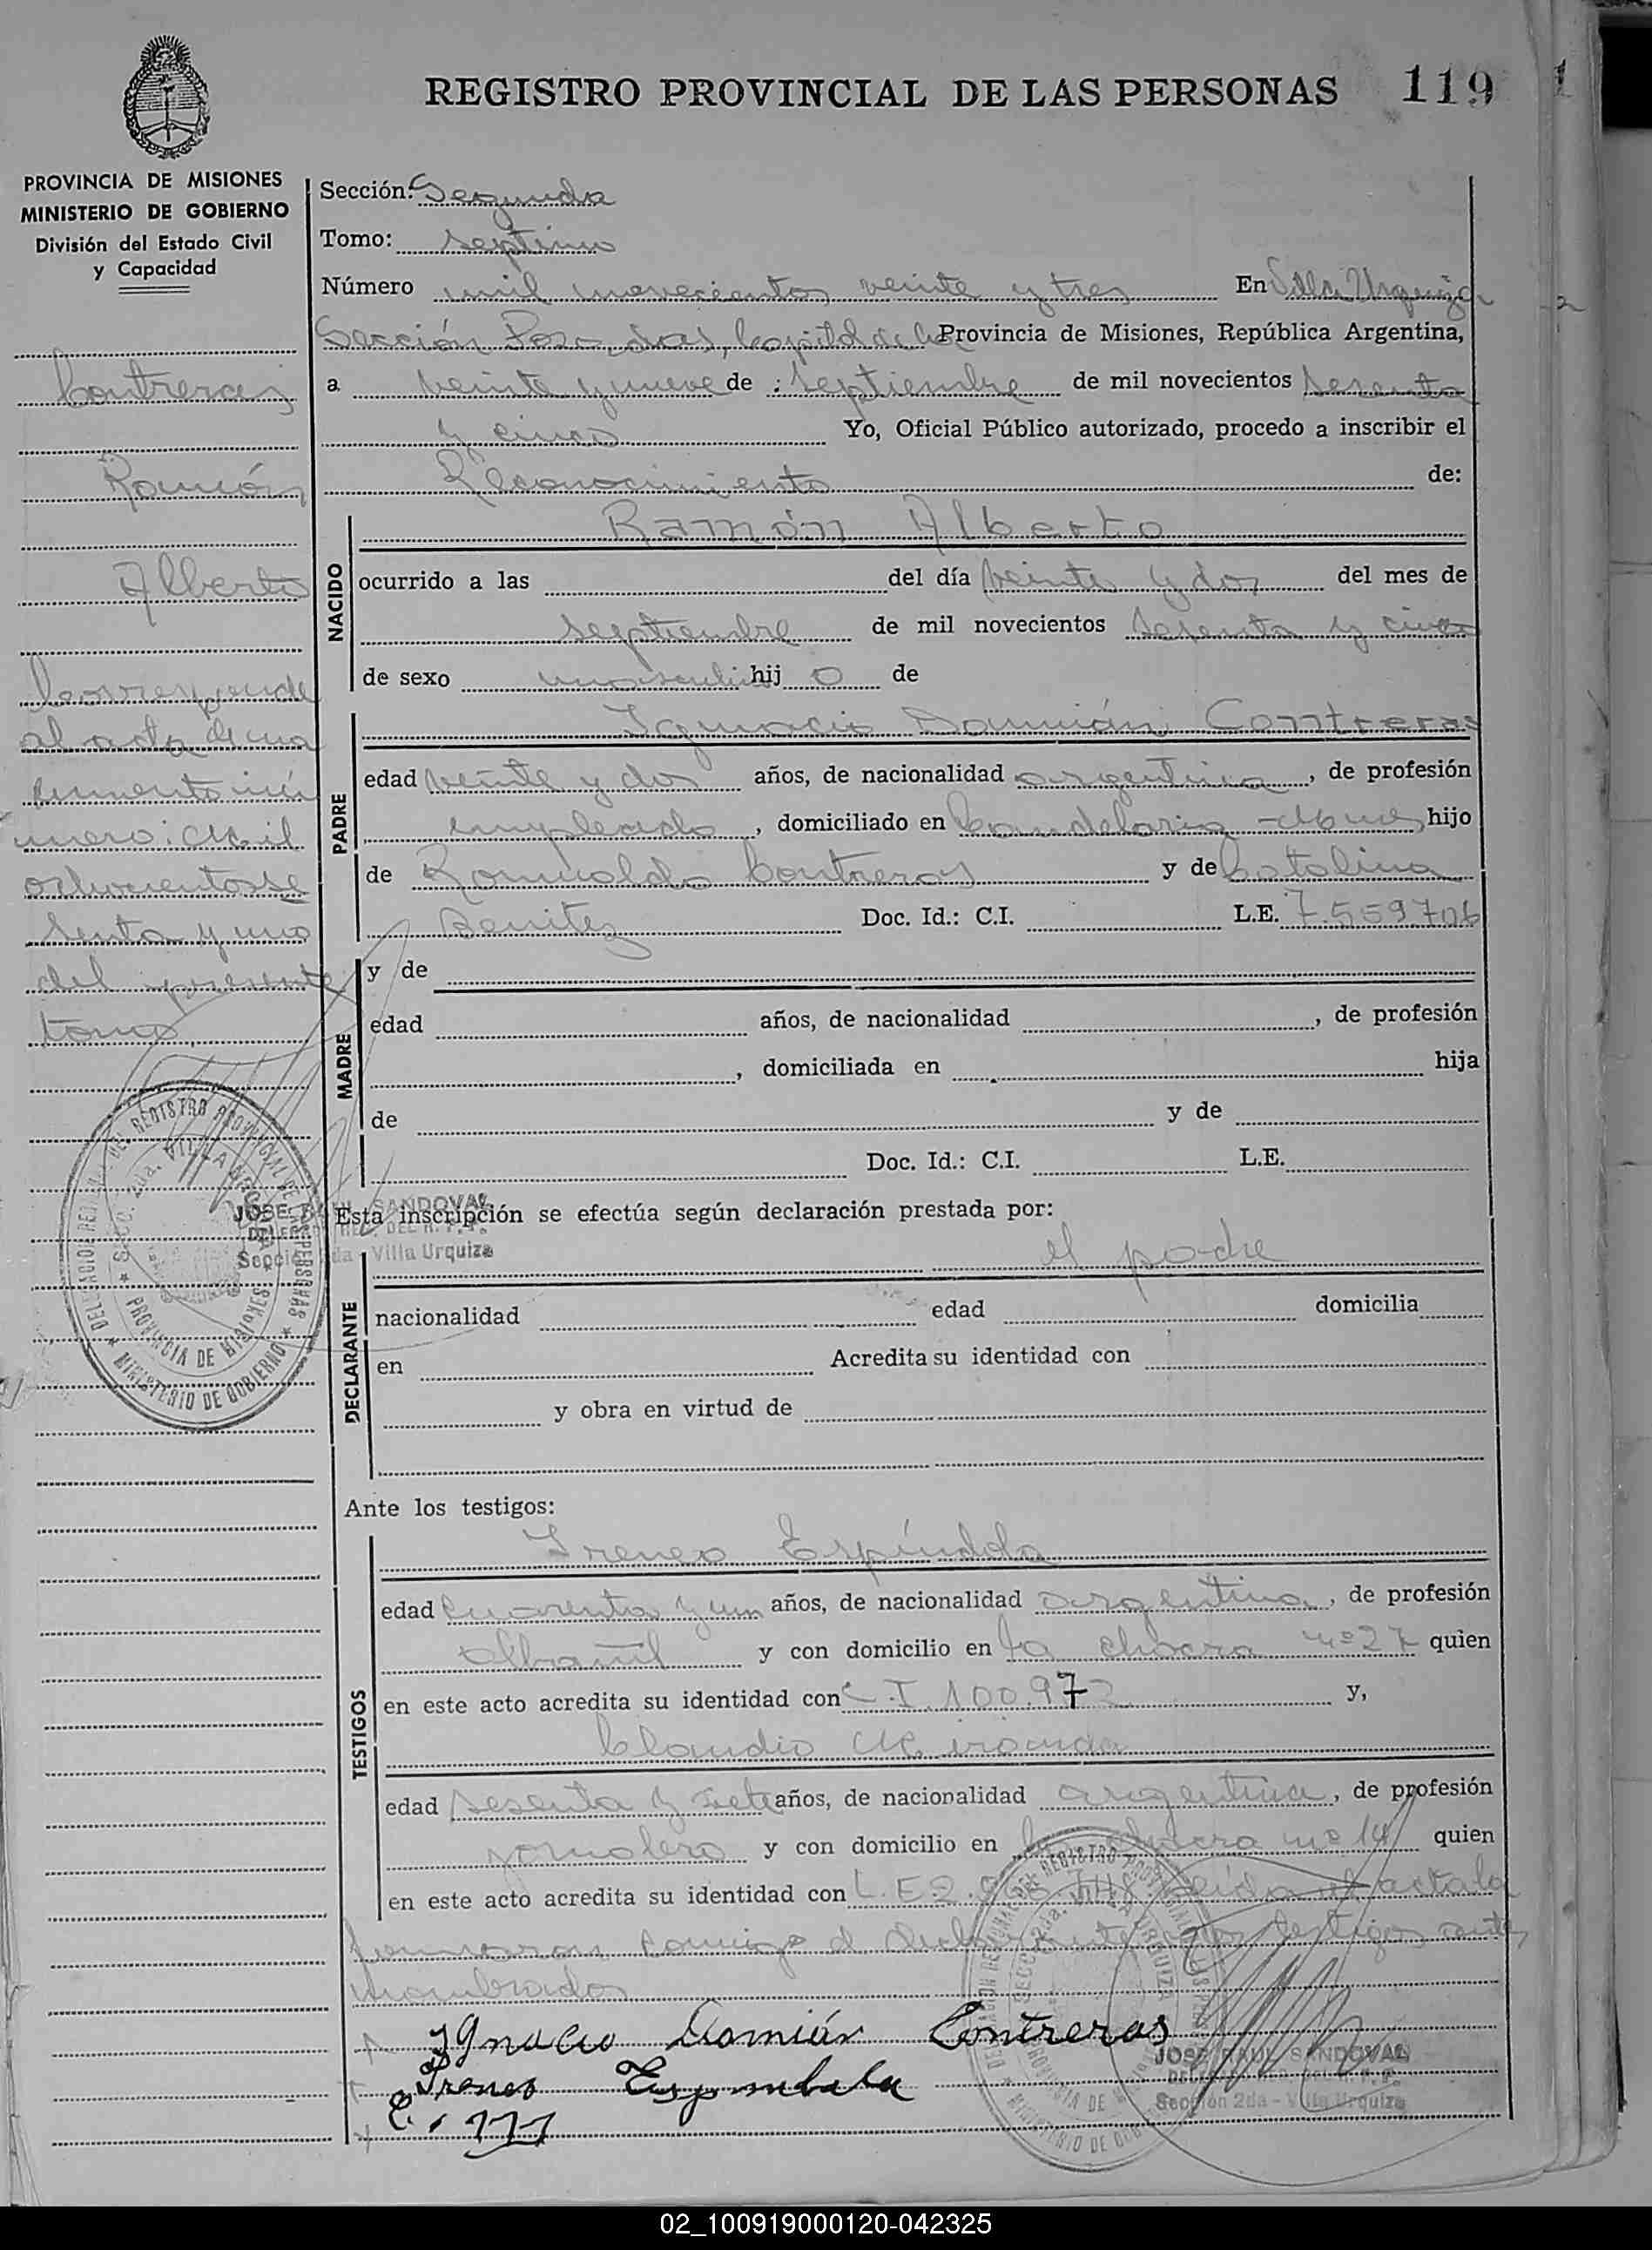 REGISTRO PROVINCIAL DE LAS PERSONAS 119
PROVINCIA DE MISIONES
MINISTERIO DE GOBIERNO
División del Estado Civil
y Capacidad
Contreras
Ramón
Alberto
Corresponde
al acta de na
cimiento nú
mero: Mil
ochocientos se
senta y uno
del presente
tomo
Sección: Segunda
Tomo: septimo
Número mil novecientos veinte y tres En Villa Urquiza
Sección Posadas, Capital de la Provincia de Misiones, República Argentina,
a veinte y nueve de : septiembre de mil novecientos sesenta
y cinco Yo, Oficial Público autorizado, procedo a inscribir el
Reconocimiento de:
NACIDO
Ramón Alberto
ocurrido a las del día veinte y dos del mes de
septiembre de mil novecientos sesenta y cinco
de sexo masculino hij o de
PADRE
Ignacio Damián Contreras
edad veinte y dos años, de nacionalidad argentina, de profesión
empleado, domiciliado en Candelaria - Mnes, hijo
de Romualdo Contreras y de Catalina
Benitez Doc. Id.: C.I. L.E. 7.559706
MADRE
y de
edad años, de nacionalidad , de profesión
, domiciliada en hija
de y de
Doc. Id.: C.I. L.E.
Esta inscripción se efectúa según declaración prestada por:
el padre
DECLARANTE
nacionalidad edad domicilia
en Acredita su identidad con
y obra en virtud de
Ante los testigos:
TESTIGOS
Ireneo Espíndola
edad cuarenta y un años, de nacionalidad argentina, de profesión
albañil y con domicilio en la chacra nº 27 quien
en este acto acredita su identidad con C.I. 100.973 y,
Claudio Miranda
edad sesenta y siete años, de nacionalidad argentina, de profesión
jornalero y con domicilio en la chacra nº 14 quien
en este acto acredita su identidad con L.E. leida el acta la
firmaron conmigo el declarante y los testigos ante
nombrados
Ignacio Damián Contreras
Ireneo Espindola
JOSE RAUL SANDOVAL
Sección 2da - Villa Urquiza
02_100919000120-042325